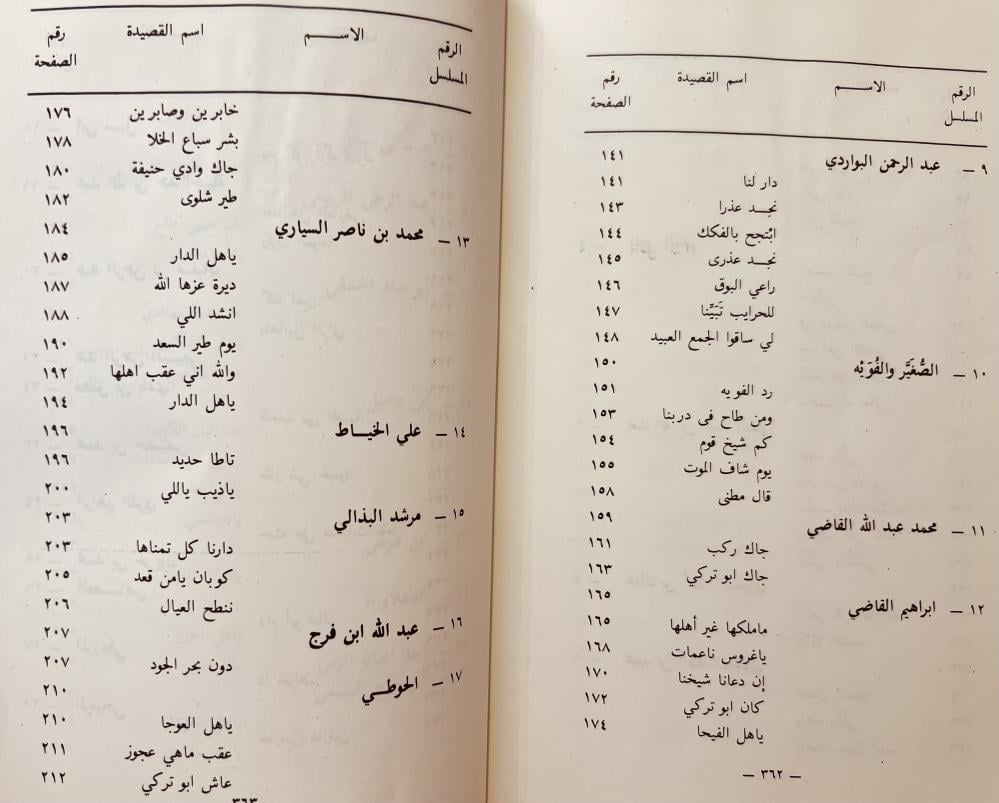 الرقم المسلسل الاســـم اسم القصيدة رقم الصفحة
٩ ــ عبد الرحمن البواردي ١٤١
دار لنا ١٤١
نجـــد عذرا ١٤٣
ابْتجح بالفكك ١٤٤
نجـــد عذرى ١٤٥
راعي البوق ١٤٦
للحرايب تَبَيِّنا ١٤٧
لي ساقوا الجمع العبيد ١٤٨
١٠ ــ الصُّغَيَّر والفُوَيْه ١٥٠
رد الفويه ١٥١
ومن طاح فى دربنا ١٥٣
كم شيخ قوم ١٥٤
يوم شاف الموت ١٥٥
قال مطنى ١٥٨
١١ ــ محمد عبد الله القاضي ١٥٩
جاك ركب ١٦١
جاك ابو تركي ١٦٣
١٢ ــ ابراهيم القاضي ١٦٥
ماملكها غير أهلها ١٦٥
ياغروس ناعمات ١٦٨
إن دعانا شيخنا ١٧٠
كان ابو تركي ١٧٢
ياهل الفيحا ١٧٤
ــ ٣٦٢ ــ
الرقم المسلسل الاســـم اسم القصيدة رقم الصفحة
خابرين وصابرين ١٧٦
بشر سباع الخلا ١٧٨
جاك وادي حنيفة ١٨٠
طير شلوى ١٨٢
١٣ ــ محمد بن ناصر السياري ١٨٤
ياهل الدار ١٨٥
ديرة عزها الله ١٨٧
انشد اللي ١٨٨
يوم طير السعد ١٩٠
والله اني عقب اهلها ١٩٢
ياهل الدار ١٩٤
١٤ ــ علي الخيـــاط ١٩٦
تاطا حديد ١٩٦
ياذيب ياللي ٢٠٠
١٥ ــ مرشد البذالي ٢٠٣
دارنا كل تمناها ٢٠٣
كوبان يامن قعد ٢٠٥
ننطح العيال ٢٠٦
١٦ ــ عبد الله ابن فرج ٢٠٧
دون بحر الجود ٢٠٧
١٧ ــ الحوطـــي ٢١٠
ياهل العوجا ٢١٠
عقب ماهي عجوز ٢١١
عاش ابو تركي ٢١٢
٣٦٣